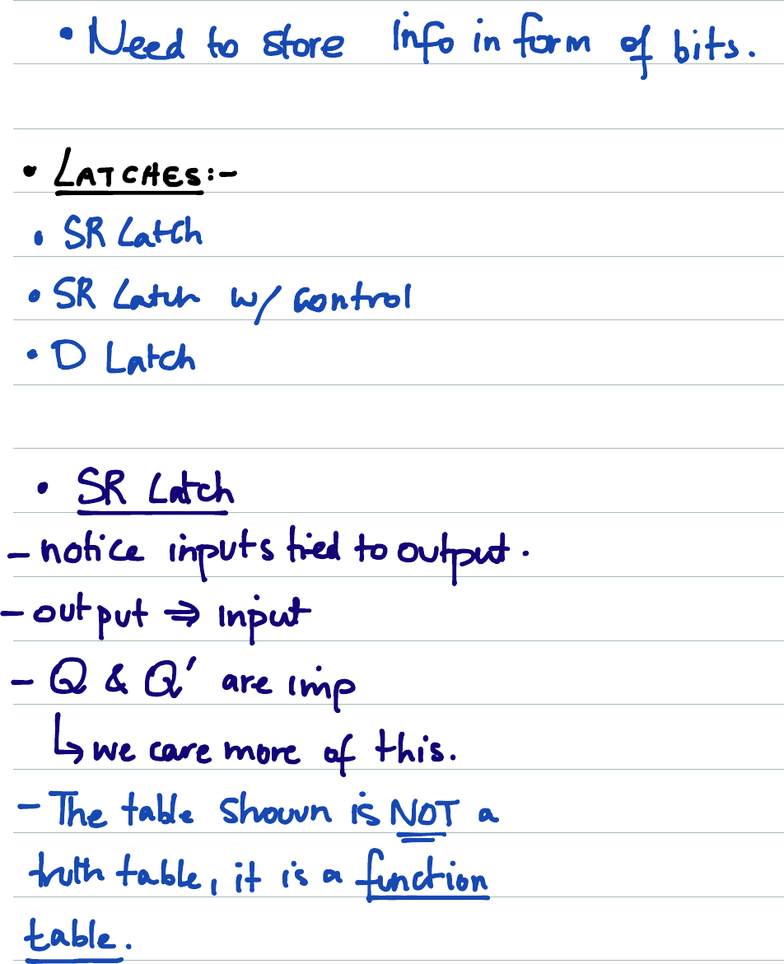 • Need to store Info in form of bits.
• LATCHES:-
• SR Latch
• SR Latch w/ control
• D Latch
• SR Latch
- notice inputs tied to output.
- output ⇒ input
- Q & Q' are imp
↳ we care more of this.
- The table shown is NOT a
truth table, it is a function
table.